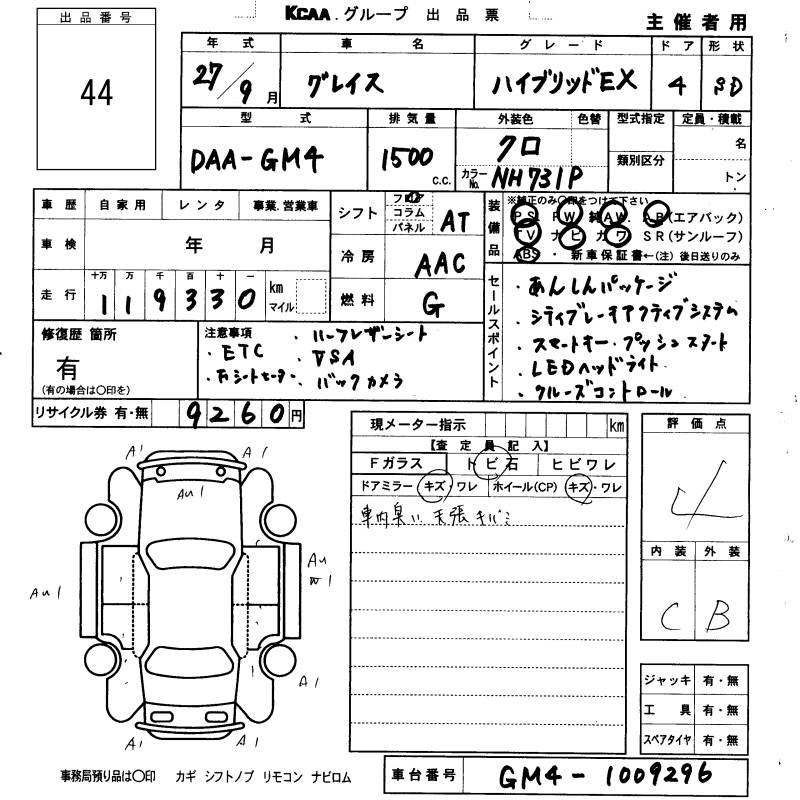 KCAA グループ 出品票
主催者用
出品番号
44
年式 車名 グレード ドア 形状
27/9月 グレイス ハイブリッドEX 4 SD
型式 排気量 外装色 色替 型式指定 定員・積載
DAA-GM4 1500 c.c. クロ 類別区分 名
カラーNo. NH731P トン
車歴 自家用 レンタ 事業.営業車
車検 年 月
走行 十万 万 千 百 十 一 km マイル
119330
シフト フロア コラム パネル AT
冷房 AAC
燃料 G
装備品 ※純正のみ〇印をつけて下さい
PS PW 純AW. AB(エアバック)
TV ナビ カワ SR(サンルーフ)
ABS ・ 新車保証書←(注)後日送りのみ
セールスポイント
・あんしんパッケージ
・シティブレーキアクティブシステム
・スマートキー・プッシュスタート
・LEDヘッドライト
・クルーズコントロール
修復歴 箇所
有
(有の場合は〇印を)
注意事項 ・ハーフレザーシート
・ETC ・VSA
・シートヒーター ・バックカメラ
リサイクル券 有・無 9260円
現メーター指示 km
【査定員記入】
Fガラス トビ石 ヒビワレ
ドアミラー キズ・ワレ ホイール(CP) キズ・ワレ
車内臭い 天張キバミ
評価点
4
内装 外装
C B
A1 A1
AU1
AU1
AU W1
A1 A1
A1 A1
ジャッキ 有・無
工具 有・無
スペアタイヤ 有・無
事務局預り品は〇印 カギ シフトノブ リモコン ナビロム
車台番号 GM4-1009296